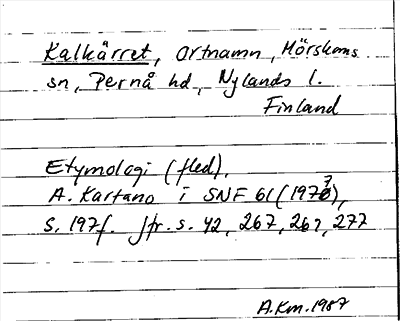 Kalkärret, ortnamn, Mörskoms
sn, Pernå hd, Nylands l.
Finland
Etymologi (fled),
A. Kartano i SNF 61 (1973),
s. 197f. Jfr. s. 42, 267, 269, 277
A.Km.1987